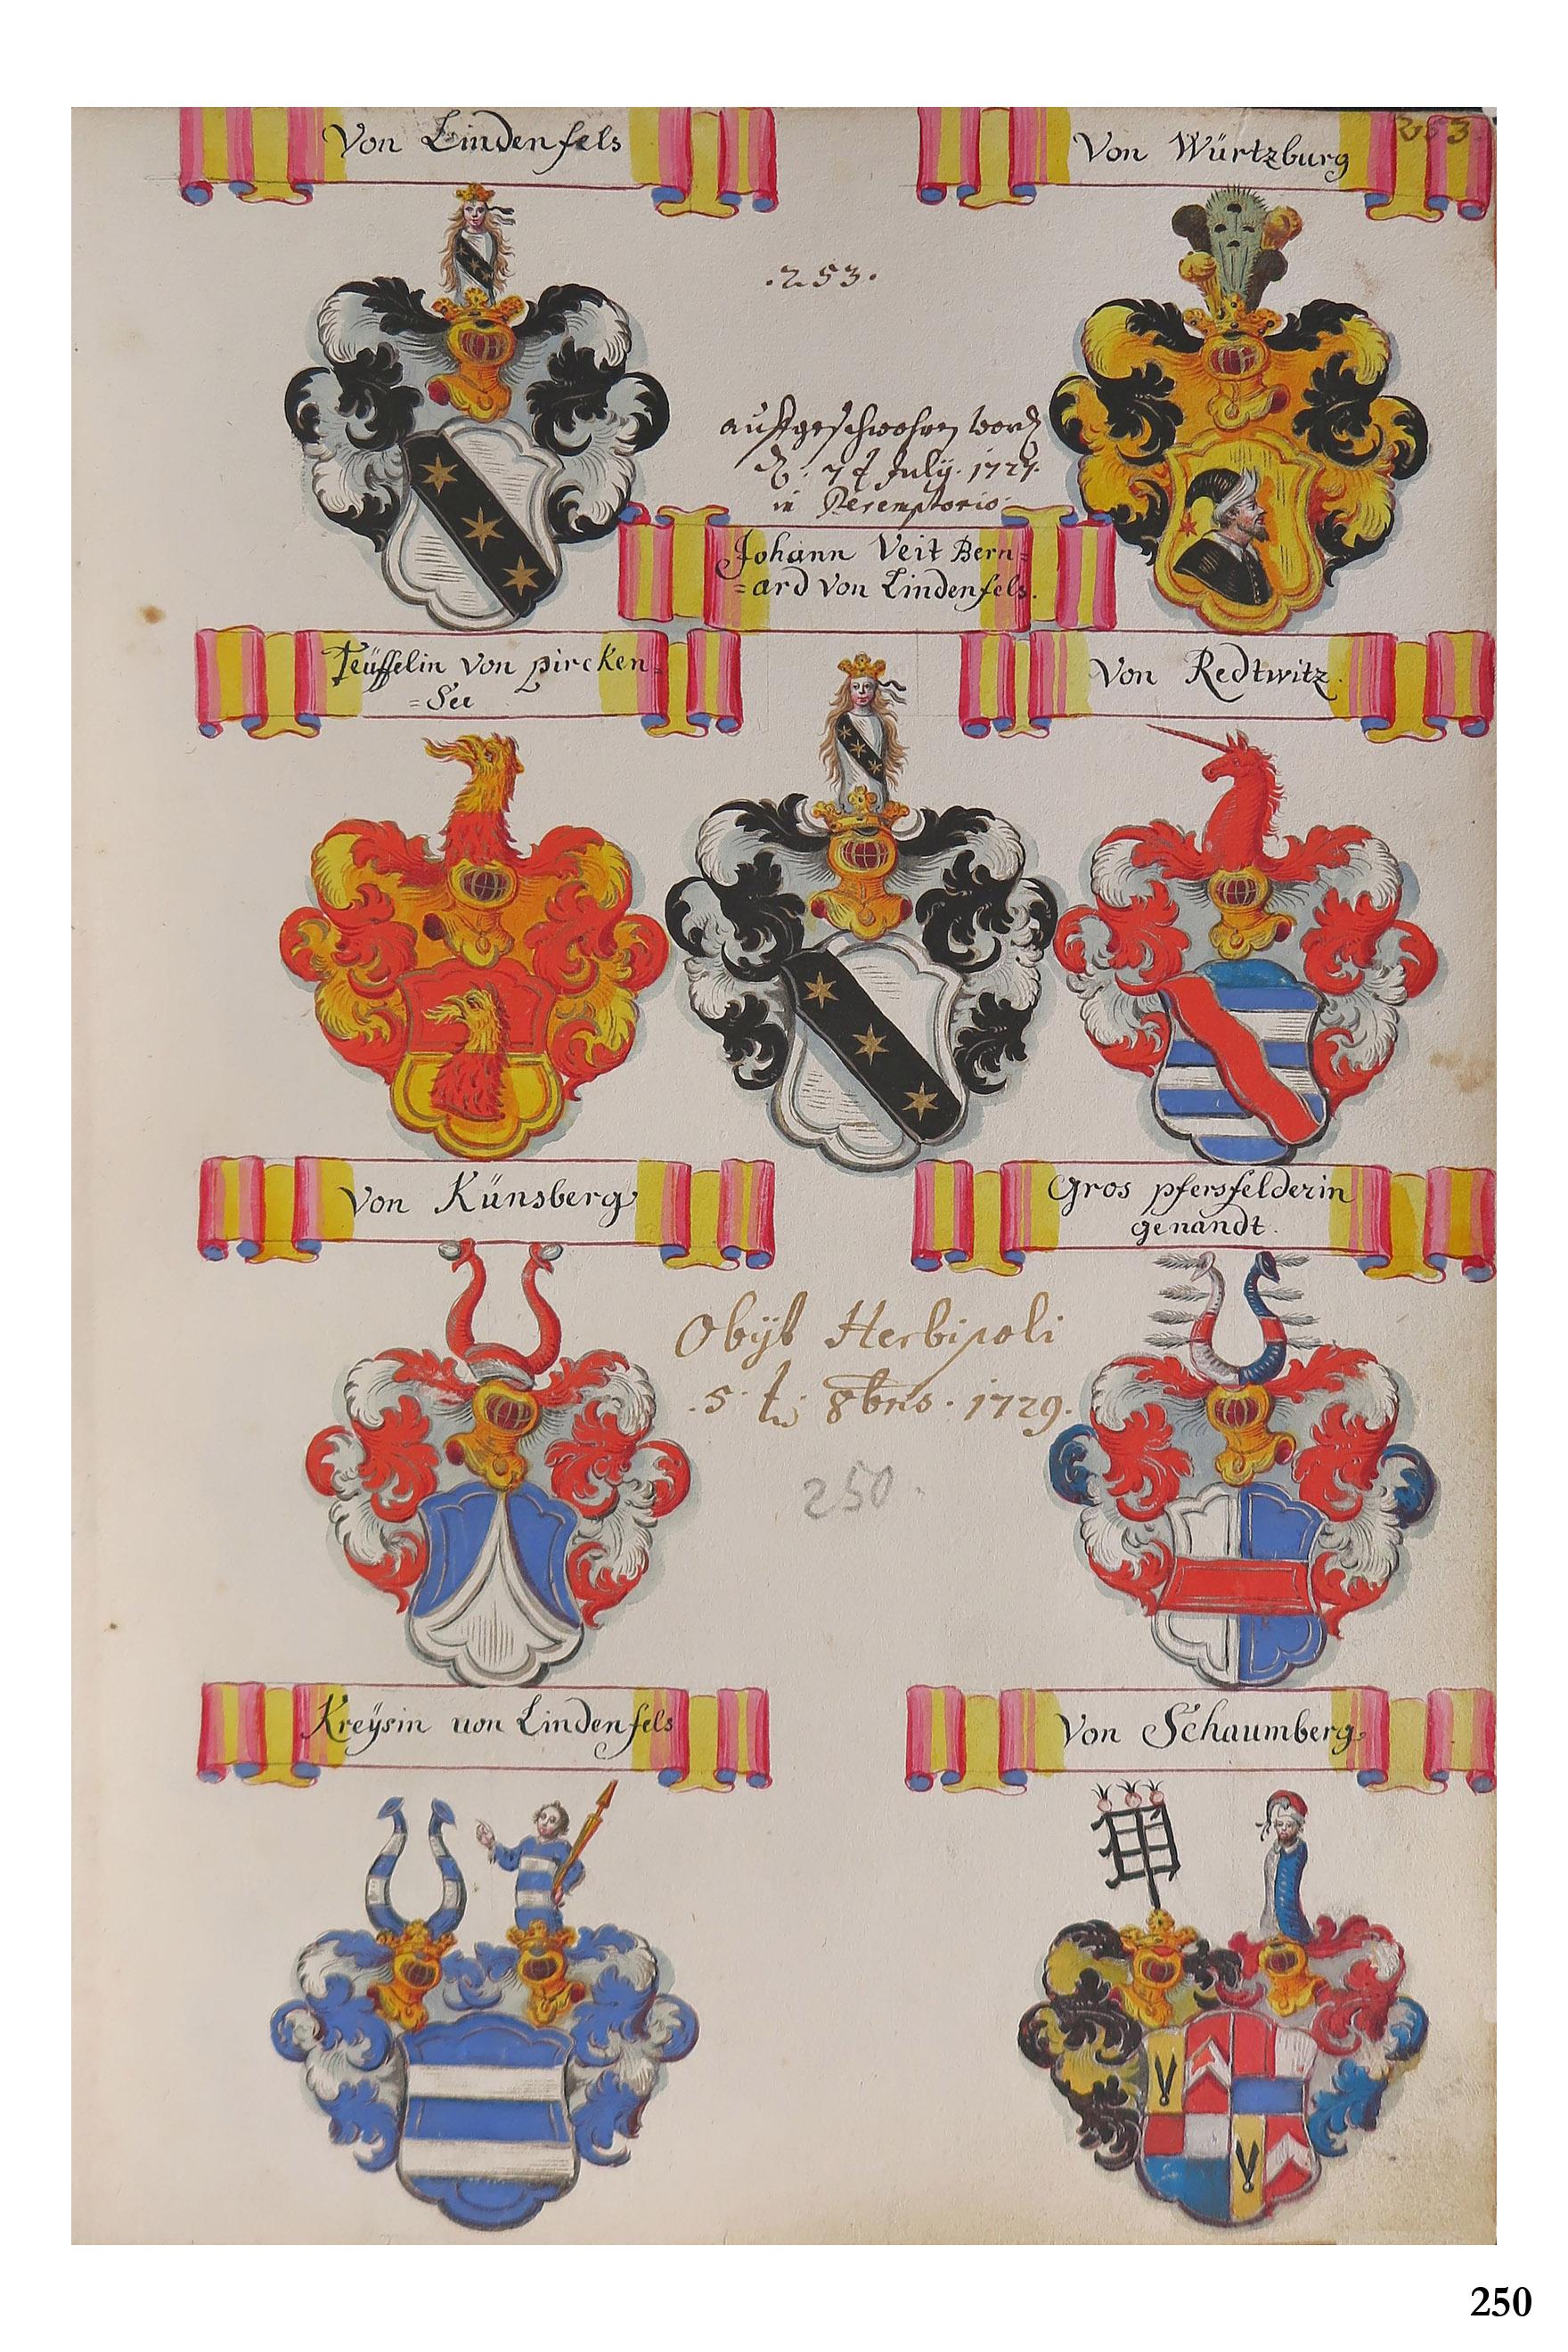 Von Lindenfels
Von Würtzburg
253.
.253.
auffgeschwohren word
d. 7t July. 1727.
in Peremptorio.
Johann Veit Bern=
=ard Von Lindenfels.
Teüffelin von pircken=
=See
Von Redtwitz.
Von Künsberg
Gros pfersfelderin
genandt.
Obÿt Herbipoli
.5. 8bris. 1729.
250.
Kreÿsin von Lindenfels
Von Schaumberg
250